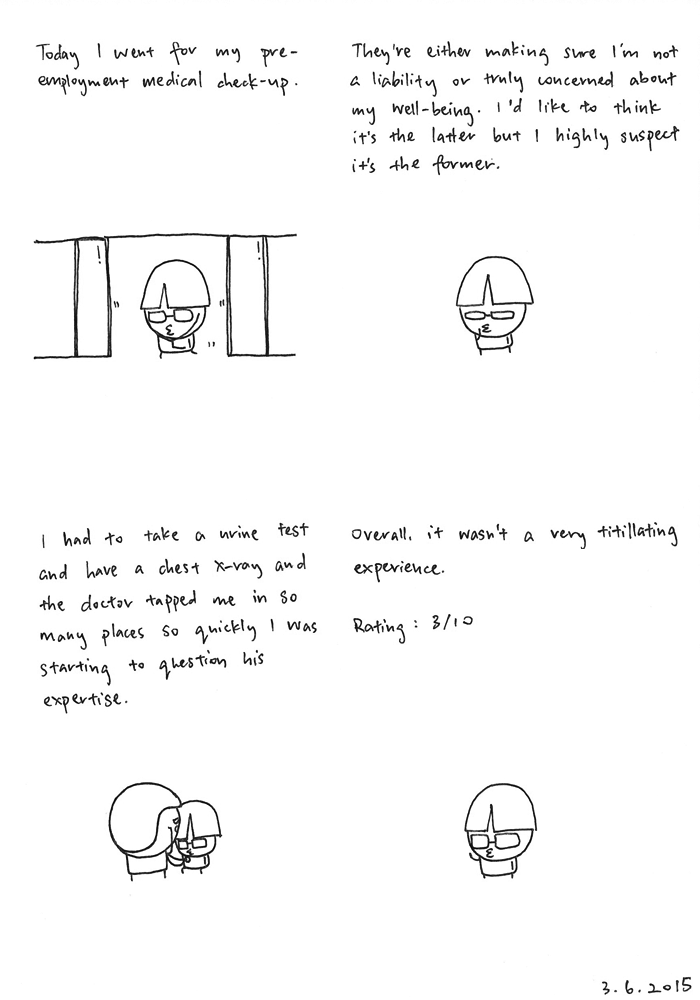 Today I went for my pre-
employment medical check-up.
They're either making sure I'm not
a liability or truly concerned about
my well-being. I'd like to think
it's the latter but I highly suspect
it's the former.
I had to take a urine test
and have a chest x-ray and
the doctor tapped me in so
many places so quickly I was
starting to question his
expertise.
Overall, it wasn't a very titillating
experience.
Rating : 3/10
3.6.2015